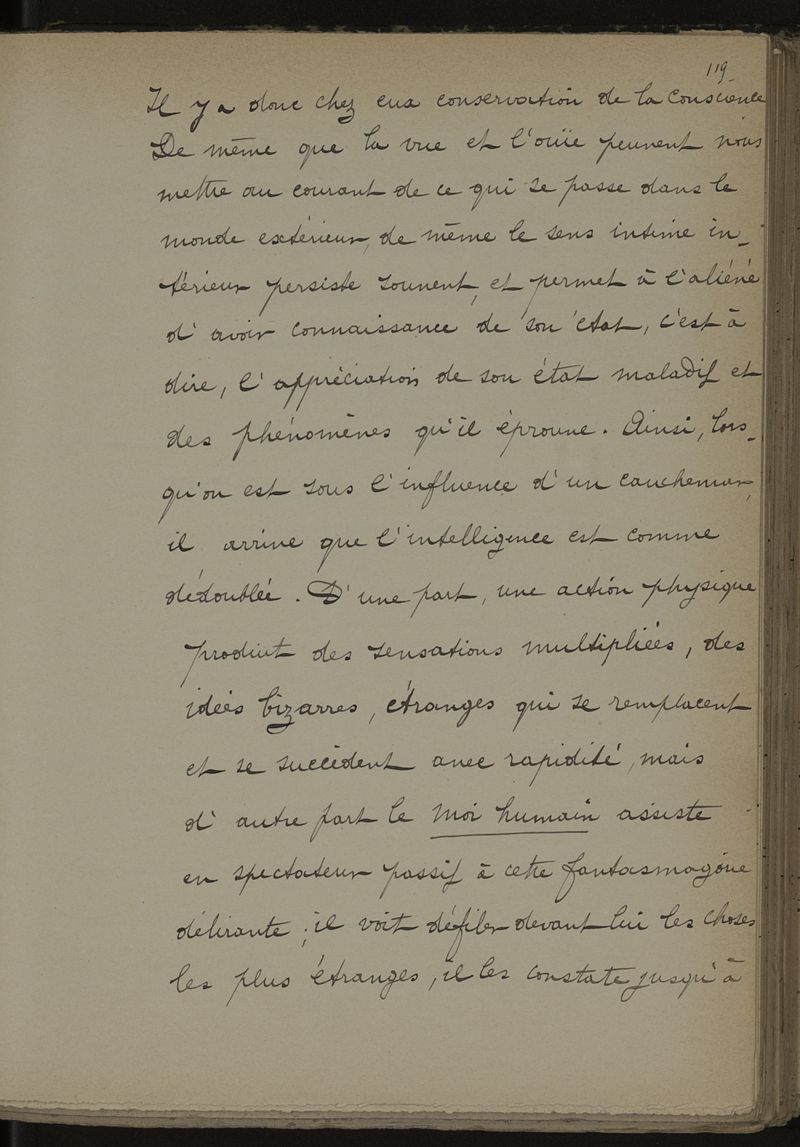 119
Il y a donc chez eux conservation de la conscience
De même que la vue et l'ouïe peuvent nous
mettre au courant de ce qui se passe dans le
monde extérieur, de même le sens intime in-
térieur persiste souvent, et permet à l'aliéné
d'avoir connaissance de son état, c'est à
dire, l'appréciation de son état maladif et
des phénomènes qu'il éprouve. Ainsi, lors-
qu'on est sous l'influence d'un cauchemar,
il arrive que l'intelligence est comme
dédoublée. D'une part, une action physique
produit des sensations multipliées, des
idées bizarres, étranges qui se remplacent
et se succèdent avec rapidité, mais
d'autre part le moi humain assiste
en spectateur passif à cette fantasmagorie
délirante ; il voit défiler devant lui les choses
les plus étranges, il les constate jusqu'à